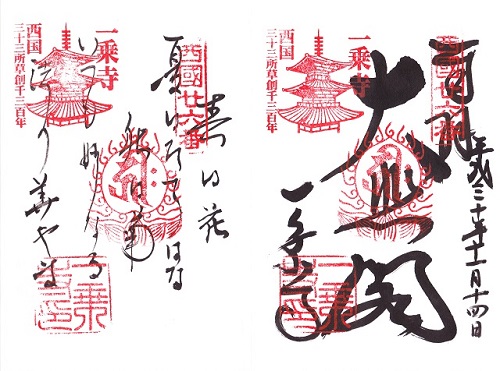 西國廿六番
奉拝
平成三十年十一月十四日
大悲閣
一乗寺
一乗寺
西国
三十三所草創千三百年
西國廿六番
春は花
秋は菊
いつも妙なる
一乗寺
西国
三十三所草創千三百年